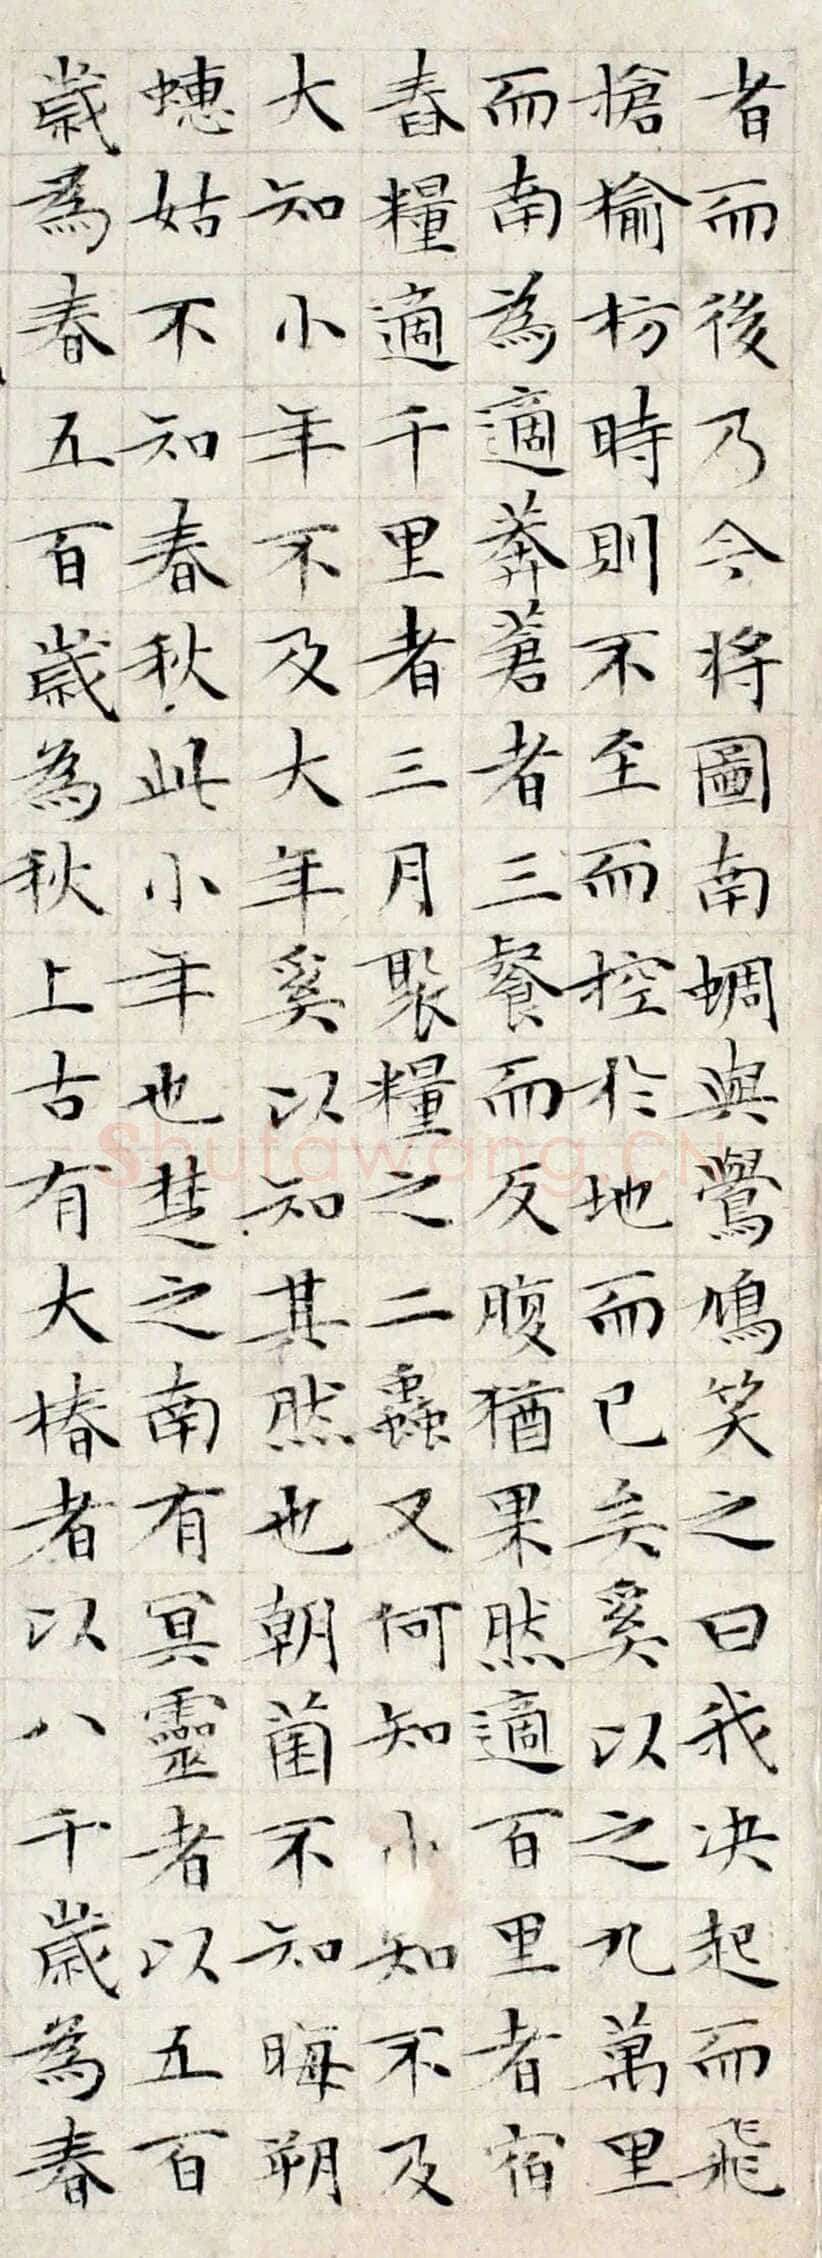 者而後乃今将圖南蜩與鷽鳩笑之曰我决起而飛
搶榆枋時則不至而控於地而已矣奚以之九萬里
而南為適莽蒼者三餐而反腹猶果然適百里者宿
舂糧適千里者三月聚糧之二蟲又何知小知不及
大知小年不及大年奚以知其然也朝菌不知晦朔
蟪姑不知春秋此小年也楚之南有冥靈者以五百
歲為春五百歲為秋上古有大椿者以八千歲為春
Shufawang.CN